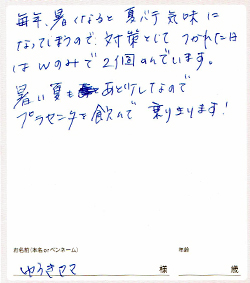 毎年、暑くなると夏バテ気味に
なってしまうので、対策としてつかれた日
はWのみで2個のんでいます。
暑い夏もあと少しなので
プラセンタを飲んで乗り切ります!
お名前(本名orペンネーム)
年齢
ゆうきママ 様 歳